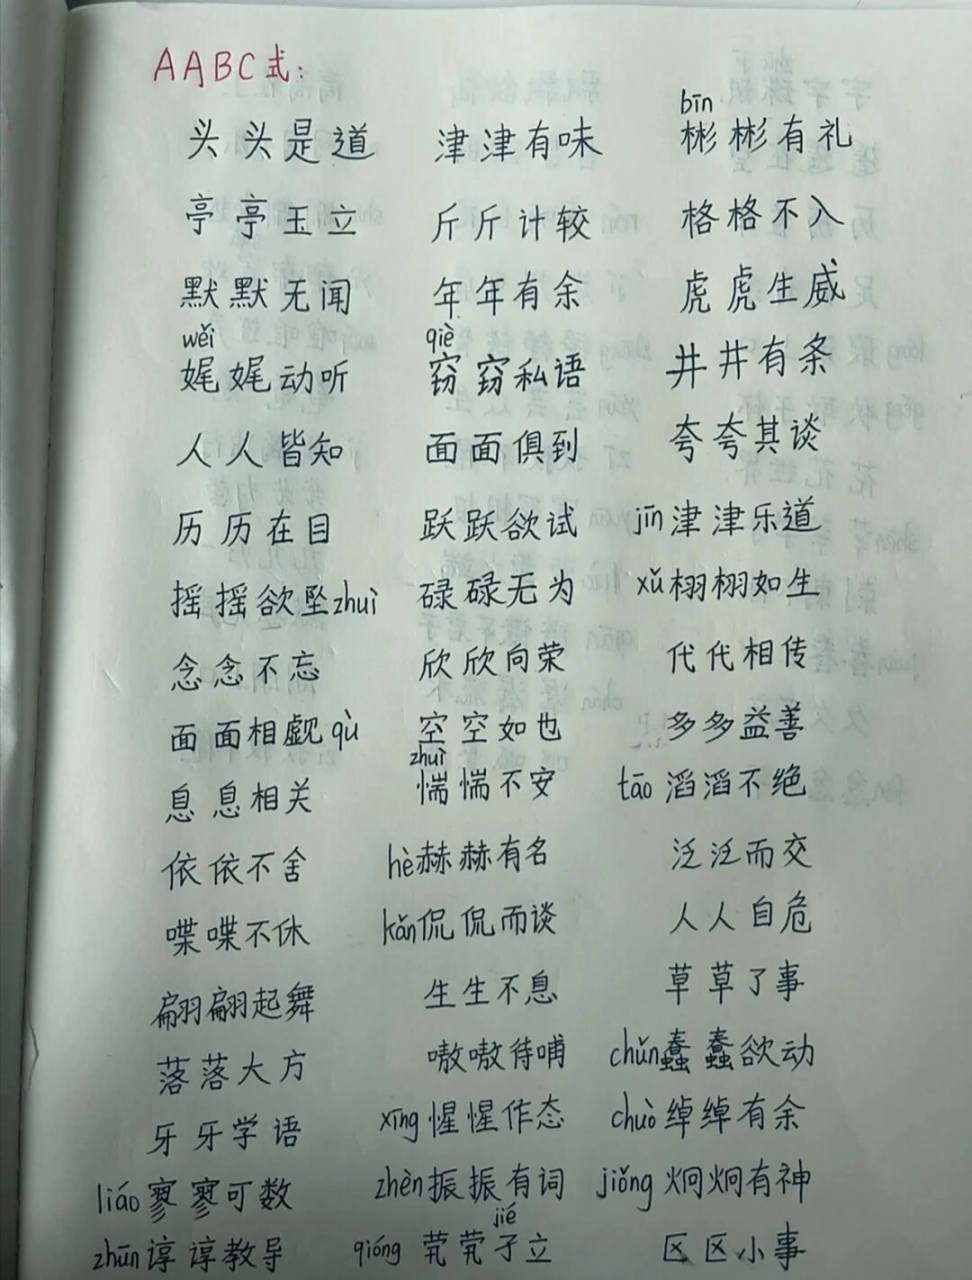 AABC式：
bīn
头头是道 津津有味 彬彬有礼
亭亭玉立 斤斤计较 格格不入
默默无闻 年年有余 虎虎生威
wěi qiè
娓娓动听 窃窃私语 井井有条
人人皆知 面面俱到 夸夸其谈
历历在目 跃跃欲试 jīn津津乐道
摇摇欲坠zhuì 碌碌无为 xǔ栩栩如生
念念不忘 欣欣向荣 代代相传
面面相觑qù 空空如也 多多益善
zhuì
息息相关 惴惴不安 tāo滔滔不绝
依依不舍 hè赫赫有名 泛泛而交
喋喋不休 kǎn侃侃而谈 人人自危
翩翩起舞 生生不息 草草了事
落落大方 嗷嗷待哺 chǔn蠢蠢欲动
牙牙学语 xīng惺惺作态 chuò绰绰有余
liáo寥寥可数 zhèn振振有词 jiǒng炯炯有神
jié
zhūn谆谆教导 qióng茕茕孑立 区区小事